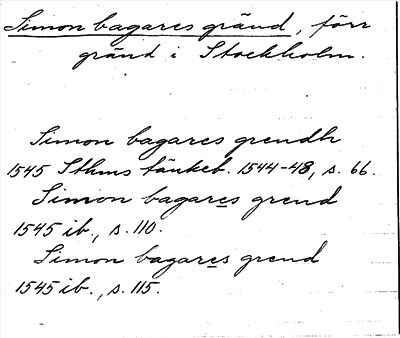 Simon bagares gränd, förr
gränd i Stockholm.
Simon bagares grendh
1545 Sthms tänkeb. 1544-48, s. 66.
Simon bagares grend
1545 ib., s. 110.
Simon bagares grend
1545 ib., s. 115.